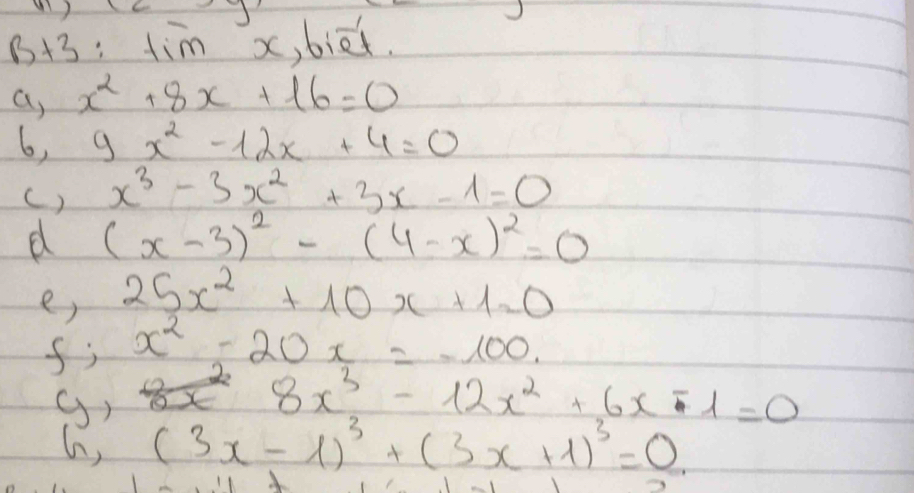 BT3: tìm x, biết.
a, x² + 8x + 16 = 0
b, 9x² - 12x + 4 = 0
c, x³ - 3x² + 3x - 1 = 0
d (x - 3)² - (4 - x)² = 0
e, 25x² + 10x + 1 = 0
f; x² - 20x = -100.
g, 8x³ - 12x² + 6x - 1 = 0
h, (3x - 1)³ + (3x + 1)³ = 0.